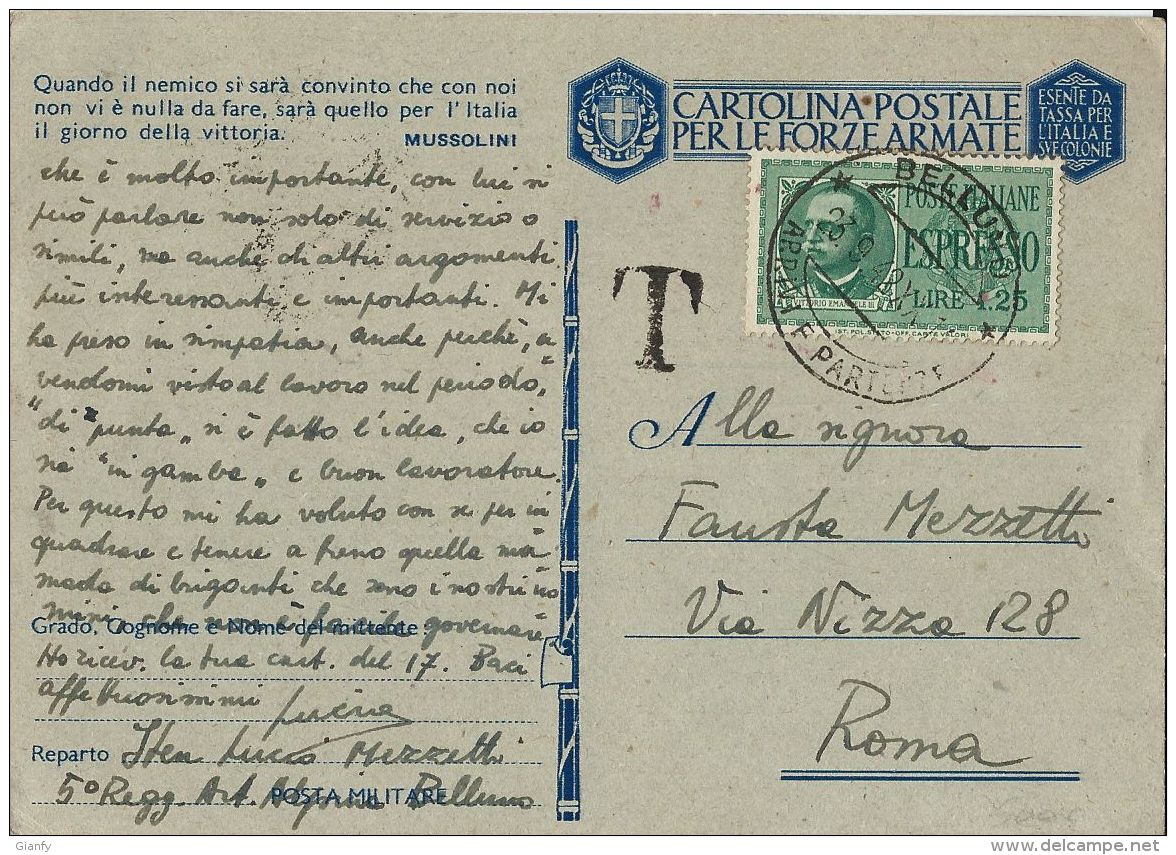 Quando il nemico si sarà convinto che con noi
non vi è nulla da fare, sarà quello per l'Italia
il giorno della vittoria.
MUSSOLINI
che è molto importante, con lui si
può parlare non solo di servizio o
simili, ma anche di altri argomenti
più interessanti e importanti. Mi
ha preso in simpatia, anche perchè, a
vendomi visto al lavoro nel periodo,
"di punta„ si è fatto l'idea, che io
sia "in gamba„ e buon lavoratore.
Per questo mi ha voluto con se per in
quadrare e tenere a freno quella
mada di briganti che sono i nostri uo
mini, che non è facile governare
Grado, Cognome e Nome del mittente
Ho ricev. la tua cart. del 17. Baci
affettuosissimi
Reparto Sten Lucio Mezzetti
5º Regg. Art. Alpina Belluno
POSTA MILITARE
CARTOLINA POSTALE
PER LE FORZE ARMATE
ESENTE DA
TASSA PER
L'ITALIA E
SUE COLONIE
POSTE ITALIANE
ESPRESSO
LIRE 1.25
VITTORIO EMANUELE III
IST. POL. STATO-OFF. CARTE VALORI
BELLUNO
ARRIVI E PARTENZE
T
Alla signora
Fausta Mezzetti
Via Nizza 128
Roma
Gianfy
www.delcampe.net